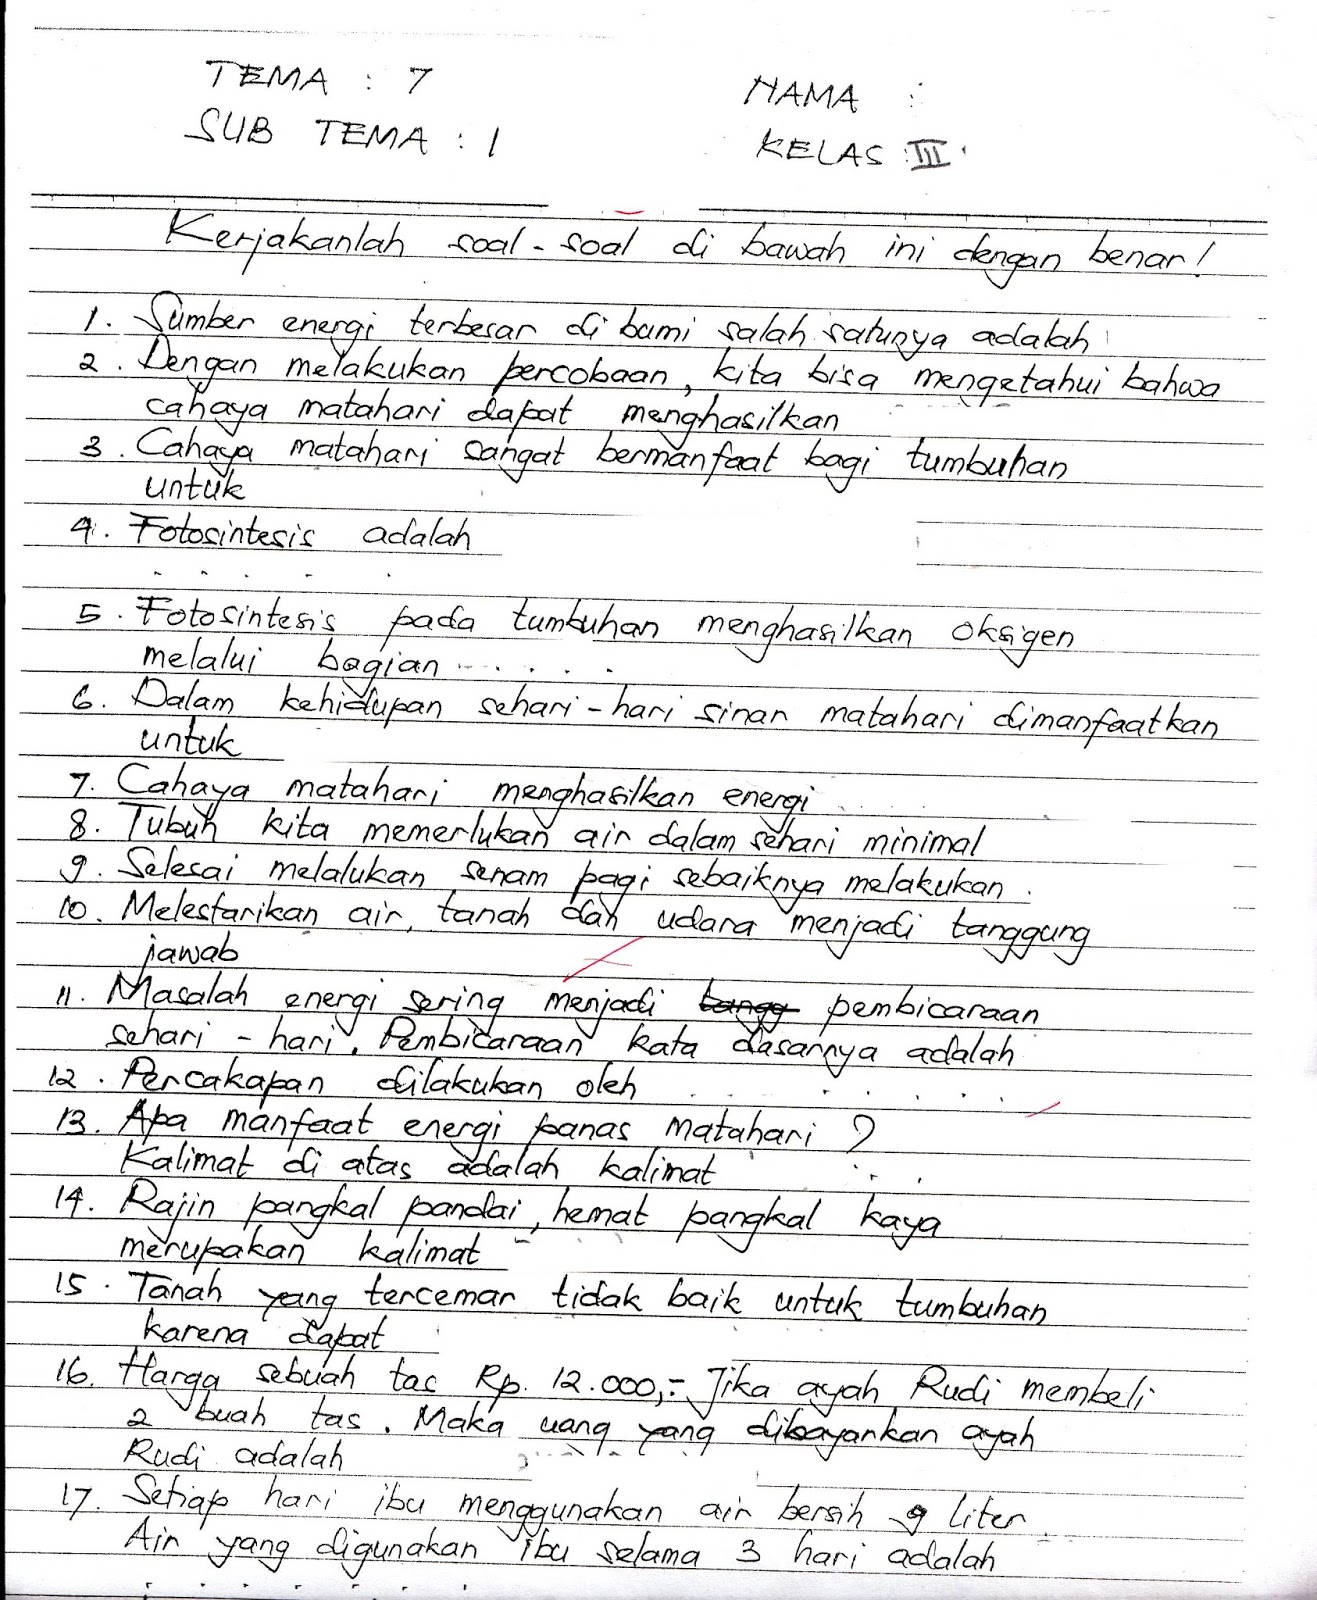 TEMA : 7
SUB TEMA : 1
NAMA :
KELAS : III.
Kerjakanlah soal-soal di bawah ini dengan benar!
1. Sumber energi terbesar di bumi salah satunya adalah
2. Dengan melakukan percobaan, kita bisa mengetahui bahwa
cahaya matahari dapat menghasilkan
3. Cahaya matahari sangat bermanfaat bagi tumbuhan
untuk
4. Fotosintesis adalah
. . . . .
5. Fotosintesis pada tumbuhan menghasilkan oksigen
melalui bagian . . . . .
6. Dalam kehidupan sehari-hari sinan matahari dimanfaatkan
untuk
7. Cahaya matahari menghasilkan energi
8. Tubuh kita memerlukan air dalam sehari minimal
9. Selesai melalukan senam pagi sebaiknya melakukan .
10. Melestarikan air, tanah dan udara menjadi tanggung
jawab
11. Masalah energi sering menjadi tangg pembicaraan
sehari - hari. Pembicaraan kata dasarnya adalah
12. Percakapan dilakukan oleh . . . . . .
13. Apa manfaat energi panas matahari ?
Kalimat di atas adalah kalimat . . .
14. Rajin pangkal pandai, hemat pangkal kaya
merupakan kalimat
15. Tanah yang tercemar tidak baik untuk tumbuhan
karena dapat
16. Harga sebuah tas Rp. 12.000,- Jika ayah Rudi membeli
2 buah tas. Maka uang yang dibayarkan ayah
Rudi adalah
17. Setiap hari ibu menggunakan air bersih 9 liter
Air yang digunakan ibu selama 3 hari adalah
. . . . . . .